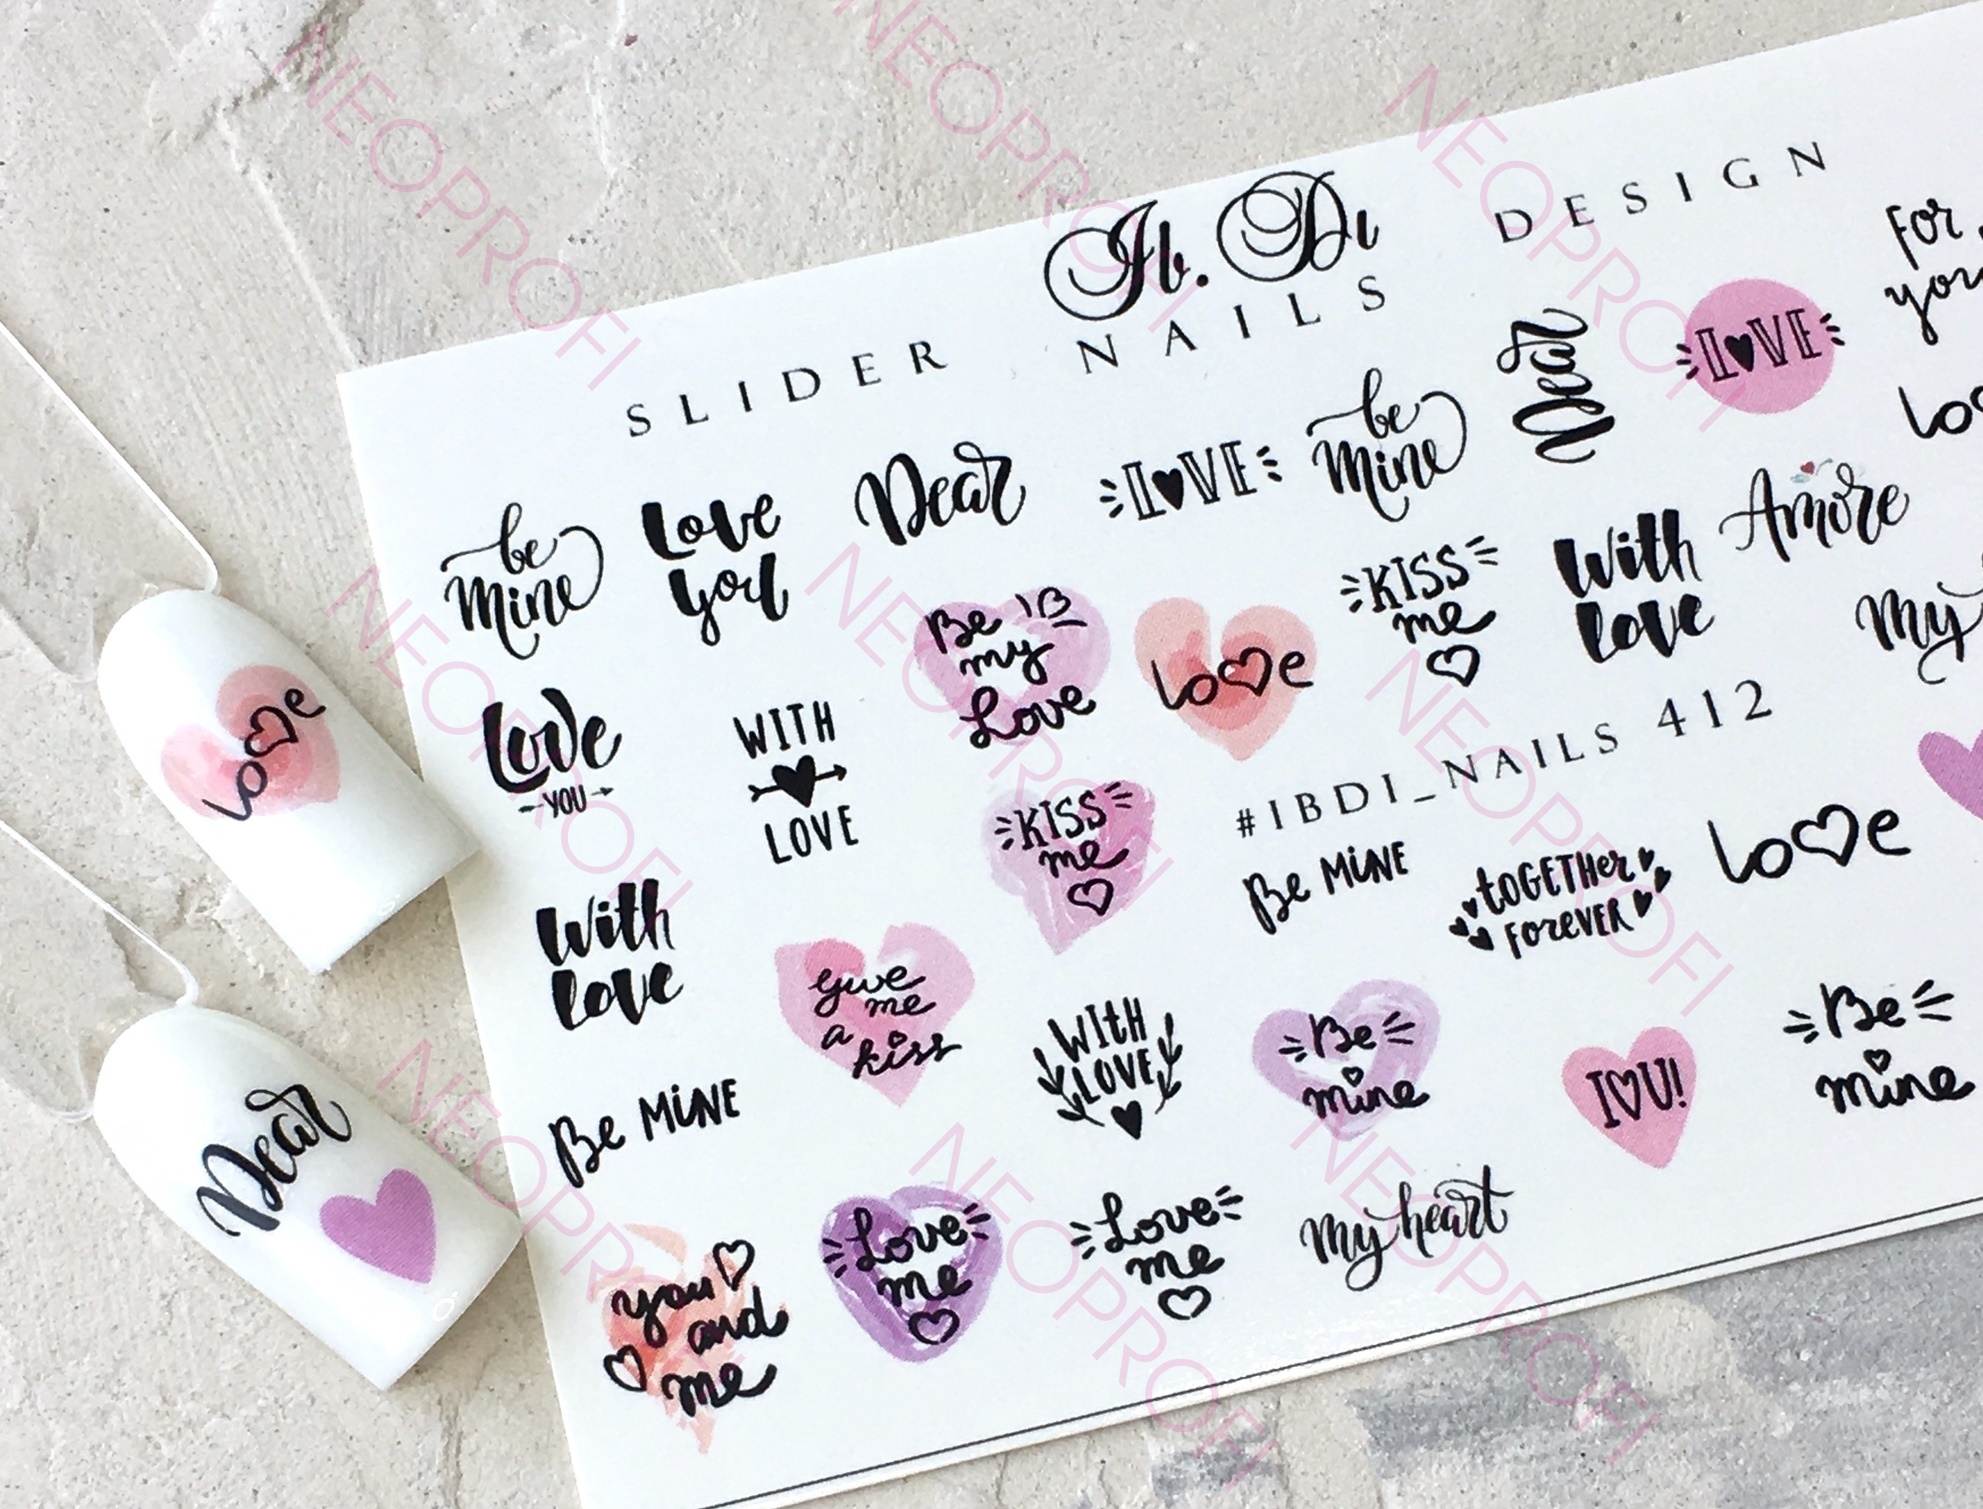 Ib. Di
SLIDER NAILS DESIGN
be
mine
Love
you
Dear
LOVE
be
mine
Dear
LOVE
For
you
Love
YOU
WITH
LOVE
Be
my
Love
love
KISS
me
With
love
Amore
My
#IBDI_NAILS 412
With
love
give
me
a kiss
KISS
me
Be MiNE
tOGETHer
ForeVER
love
Be MiNE
WItH
LOVE
Be
mine
I♡U!
Be
mine
you
and
me
Love
me
Love
me
My heart
love
Dear
NEOPROFI
NEOPROFI
NEOPROFI
NEOPROFI
NEOPROFI
NEOPROFI
NEOPROFI
NEOPROFI
NEOPROFI